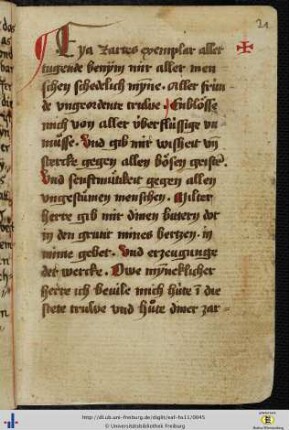 21
Eya zartes exemplar aller
tugende benÿm mir aller men
schen schedlich mÿne. Aller frün
de vngeordente truwe. Enblösse
mich von aller vberflüssige vn
müsse. Vnd gib mir wisheit vn̄
stercke gegen allen bösen geiste.
Vnd senftmütikeit gegen allen
vngestümen menschen. Milter
herre gib mir dinen bittern dot
in den grunt mines hertzen. in
mine gebet. Vnd erzeugunge
der wercke. Owe mÿneklicher
herre ich bevile mich hüte ī die
stete truwe vnd hüte diner zar-
http://dl.ub.uni-freiburg.de/diglit/eaf-hs11/0045
© Universitätsbibliothek Freiburg